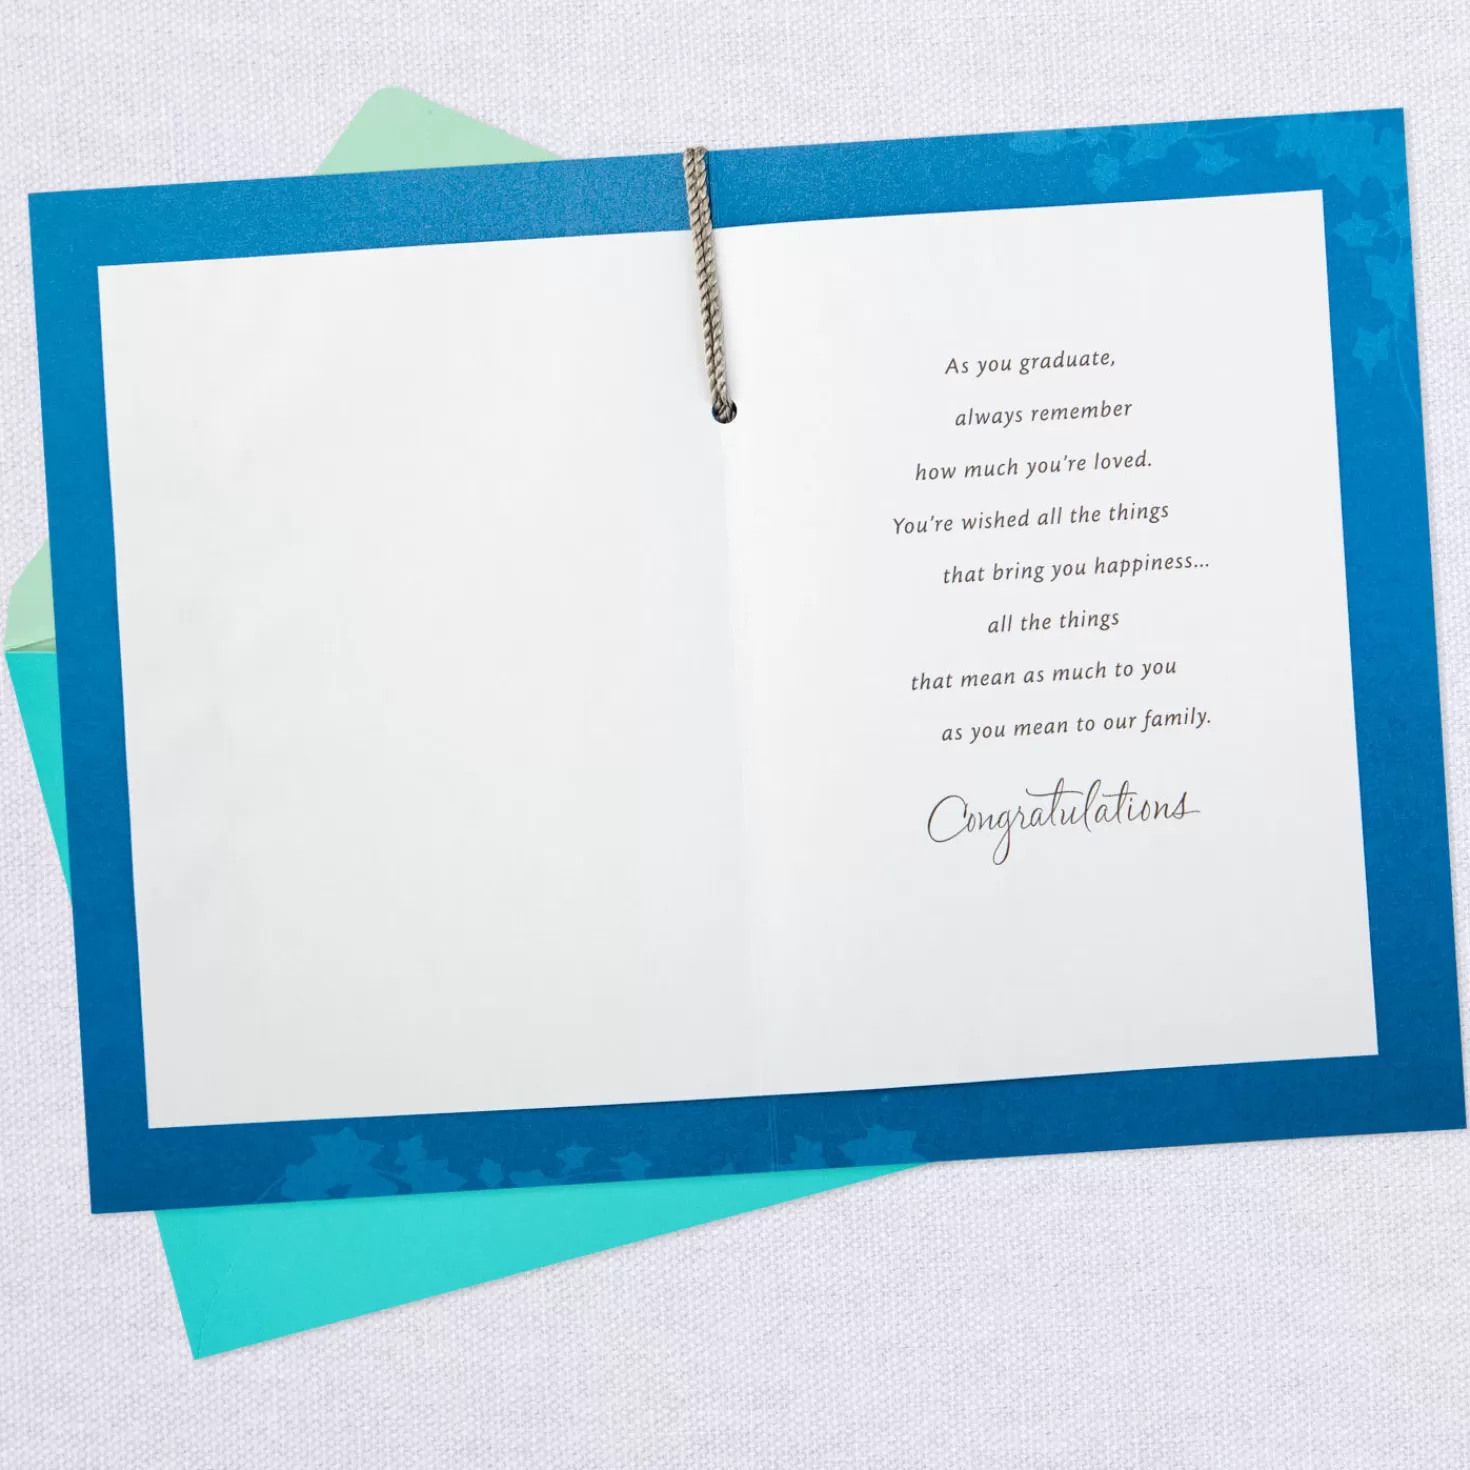 As you graduate,
always remember
how much you're loved.
You're wished all the things
that bring you happiness...
all the things
that mean as much to you
as you mean to our family.
Congratulations